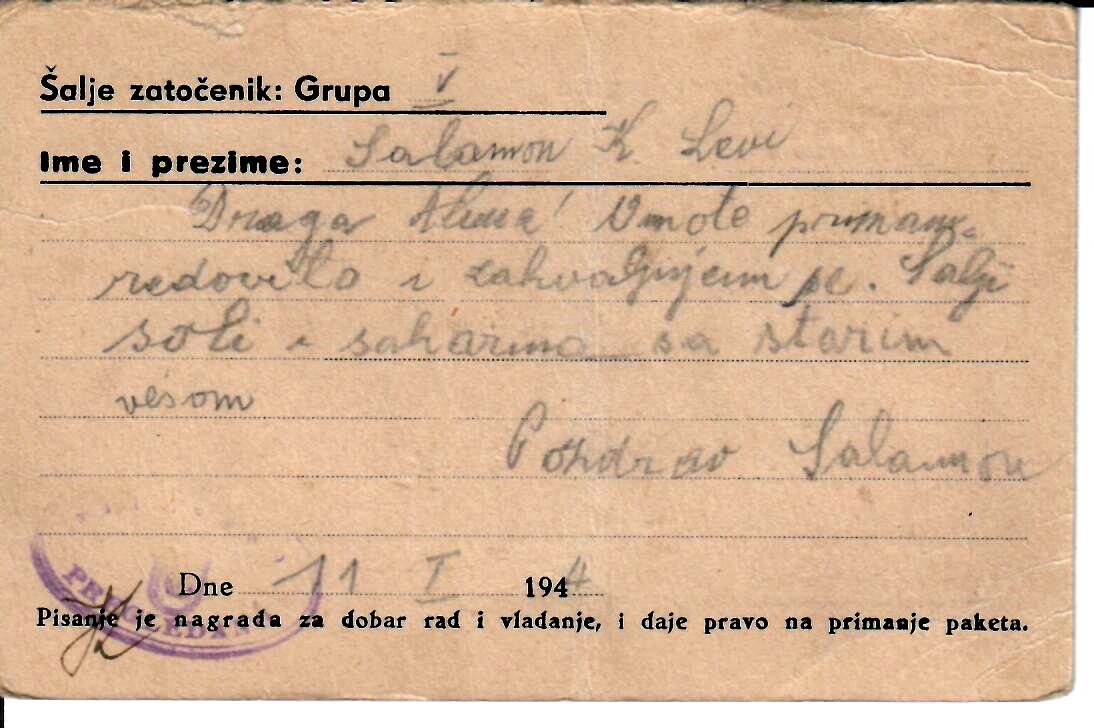 Šalje zatočenik: Grupa V
Ime i prezime: Salamon K Levi
Draga ! Omote primam
redovito i zahvaljujem se. Šalji
soli i saharina sa starim
vesom
Pozdrav Salamon
Dne 11 I 1944
Pisanje je nagrada za dobar rad i vladanje, i daje pravo na primanje paketa.